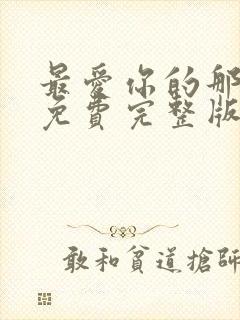 最愛你的那
免費完整版
敢和貧道搶師